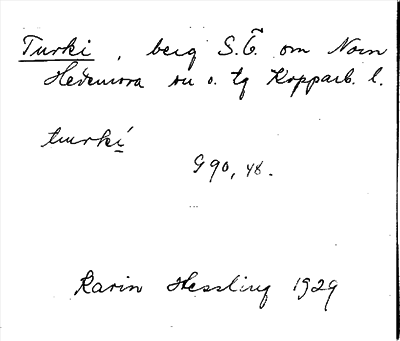 Turki, berg S.Ö. om Norn
Hedemora sn o. tg Kopparb. l.
turki
G90, 48.
Karin Hessling 1929